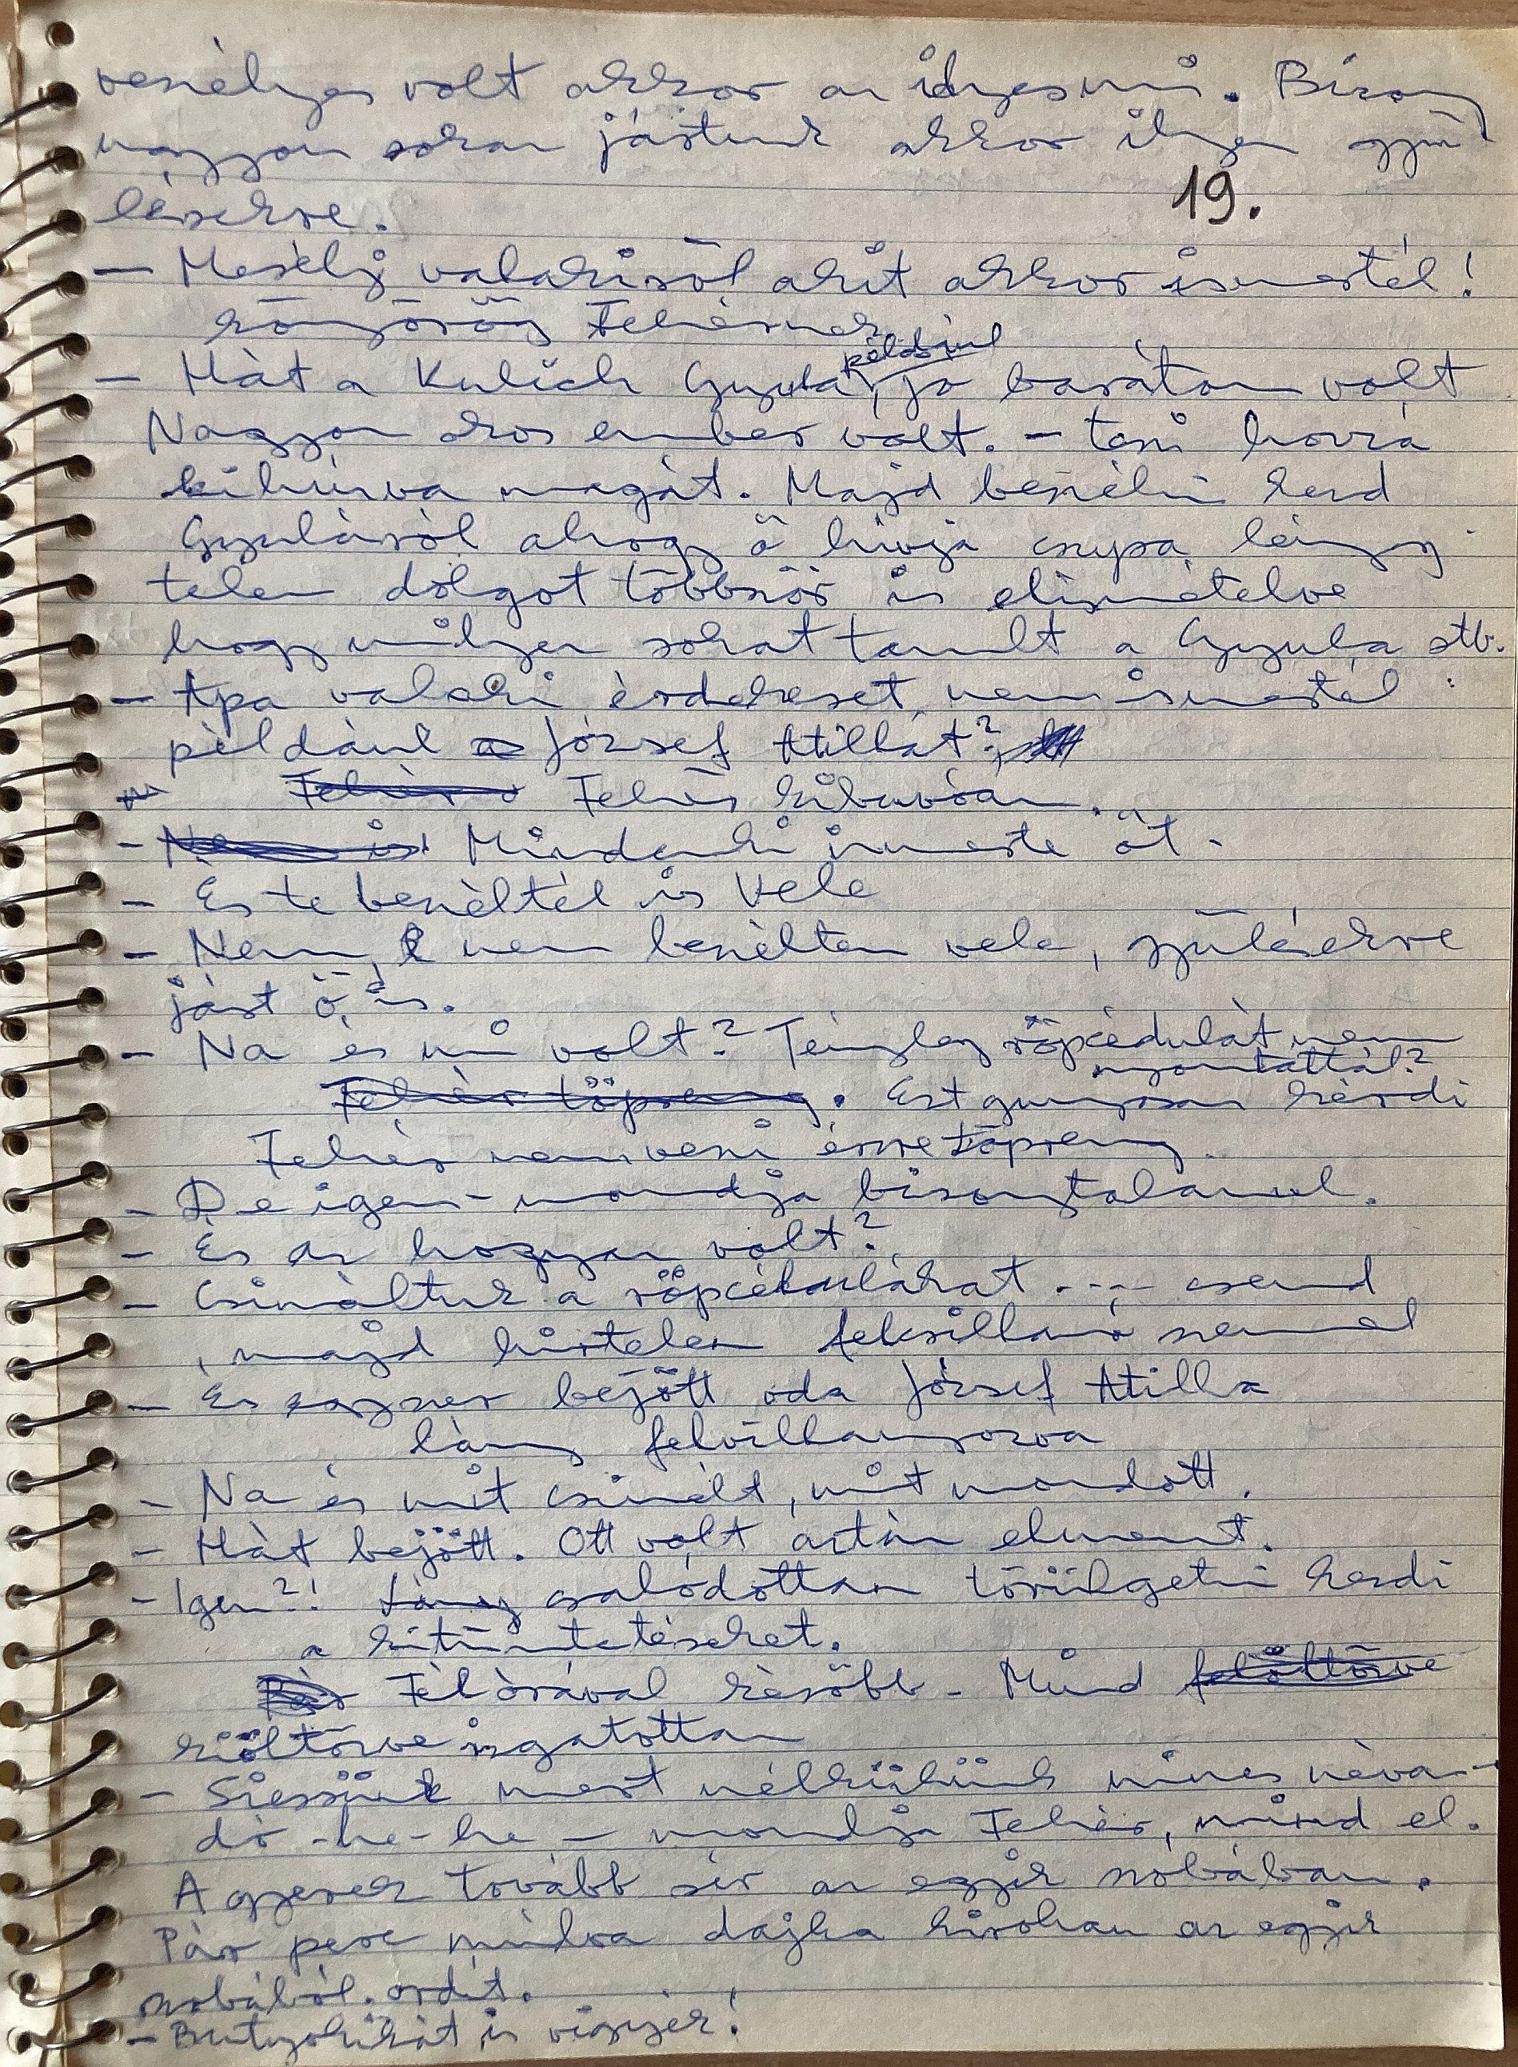 veszélyes volt akkor az ilyesmi. Bizony
nagyon sokan jártunk akkor ilyen gyű
lésekre.
19.
— Mesélj valakiről akit akkor ismertél!
könyörög Fehérnek
például
— Hát a Kulich Gyula, jó barátom volt
Nagyon okos ember volt. - teszi hozzá
kihúzva magát. Majd beszélni kezd
Gyuláról ahogy ő hívja csupa lényeg
telen dolgot többször is elismételve
hogy milyen sokat tanult a Gyula stb.
- Apa valaki érdekeset nem ismertél
például a József Attilát?
Fehér Fehér kibúvóan.
- Mindenki ismerte őt.
- És te beszéltél is Vele
- Nem, nem beszéltem vele, gyűlésekre
járt ő is.
- Na és mi volt? Tényleg röpcédulát nem
nyomtattál?
Fehér töpreng. Ezt gunyosan kérdi
Fehér nem veszi észre töpreng.
- De igen - mondja bizonytalanul.
- És az hogyan volt?
- Csináltuk a röpcédulákat --- csend
, majd hirtelen felcsillanó szemmel
- És egyszer bejött oda József Attilla
lány felvillanyozva
- Na és mit csinált, mit mondott.
- Hát bejött. Ott volt aztán elment.
- Igen?! Lány csalódottan törülgetni kezdi
a kitüntetéseket.
Fél órával később - Mind felöltözve
kiöltözve izgatottan
- Siessünk mert nélkülünk nincs néva-
dó -he-he - mondja Fehér, mind el.
A gyerek tovább sír az egyik szobában.
Pár perc múlva dajka kirohan az egyik
szobából. ordít.
- Butyokikát is vigyék!